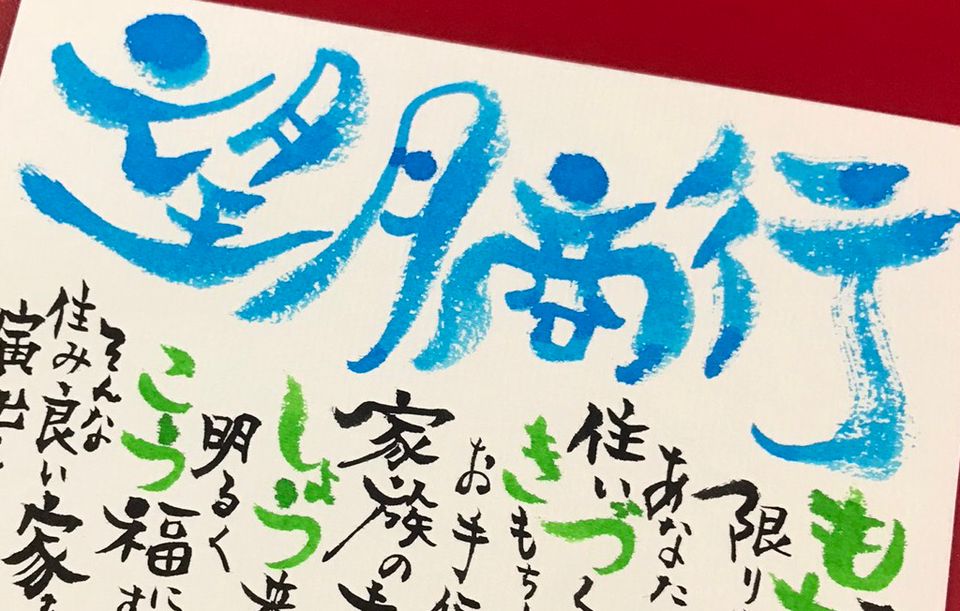 望月商行
も
限り
あなた
住いづく
きもち
お手伝
家族の
しょう
明るく
こう福に
そんな
住み良い家
演出